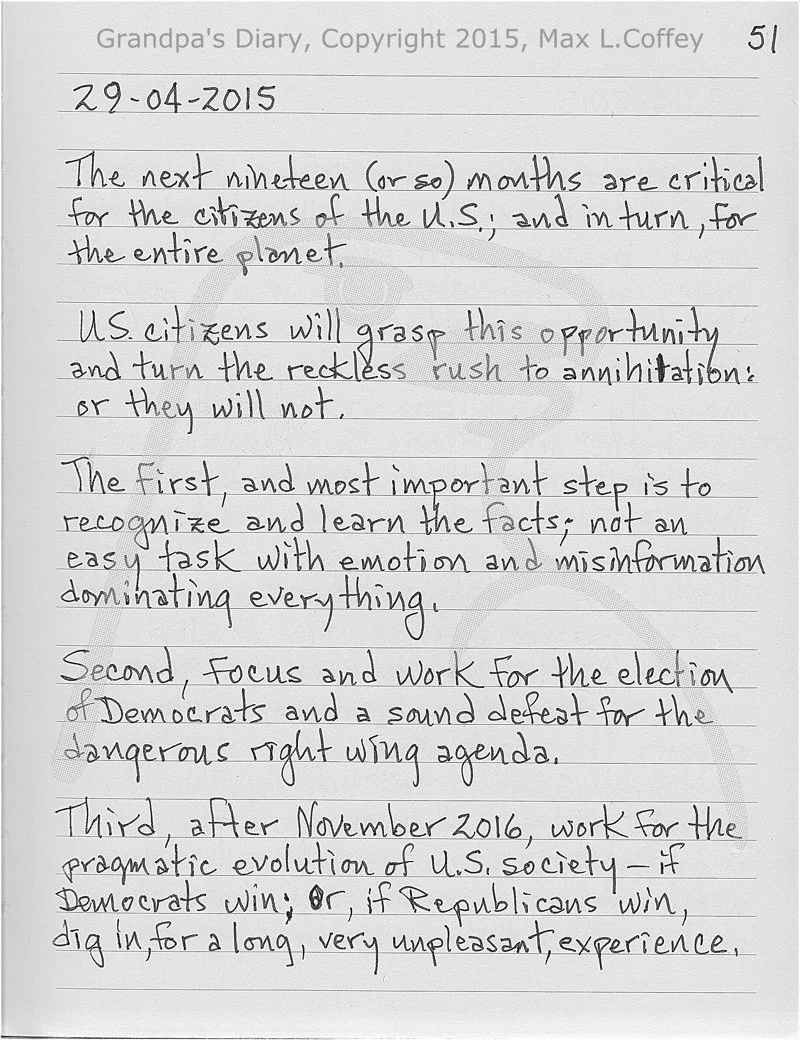 Grandpa's Diary, Copyright 2015, Max L.Coffey 51
29-04-2015
The next nineteen (or so) months are critical
for the citizens of the U.S.; and in turn, for
the entire planet.
U.S. citizens will grasp this opportunity
and turn the reckless rush to annihilation:
or they will not.
The first, and most important step is to
recognize and learn the facts; not an
easy task with emotion and misinformation
dominating everything.
Second, focus and work for the election
of Democrats and a sound defeat for the
dangerous right wing agenda.
Third, after November 2016, work for the
pragmatic evolution of U.S. society – if
Democrats win; Or, if Republicans win,
dig in, for a long, very unpleasant, experience.